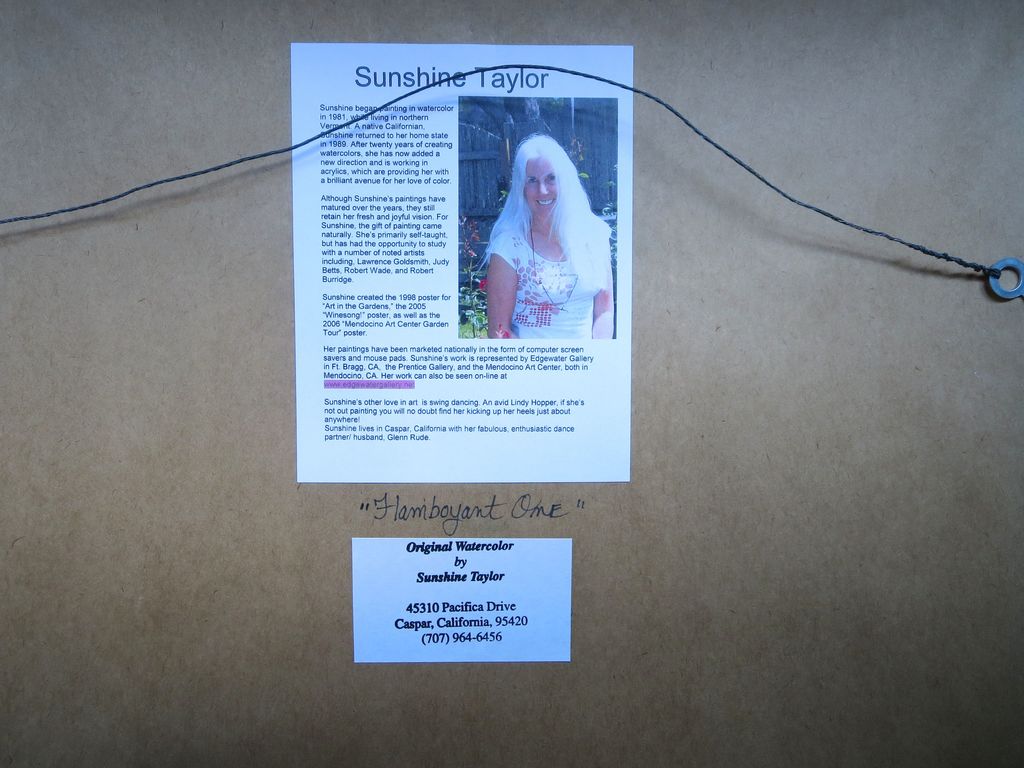 Sunshine Taylor
Sunshine began painting in watercolor
in 1981, while living in northern
Vermont. A native Californian,
Sunshine returned to her home state
in 1989. After twenty years of creating
watercolors, she has now added a
new direction and is working in
acrylics, which are providing her with
a brilliant avenue for her love of color.
Although Sunshine's paintings have
matured over the years, they still
retain her fresh and joyful vision. For
Sunshine, the gift of painting came
naturally. She's primarily self-taught,
but has had the opportunity to study
with a number of noted artists
including, Lawrence Goldsmith, Judy
Betts, Robert Wade, and Robert
Burridge.
Sunshine created the 1998 poster for
"Art in the Gardens," the 2005
"Winesong!" poster, as well as the
2006 "Mendocino Art Center Garden
Tour" poster.
Her paintings have been marketed nationally in the form of computer screen
savers and mouse pads. Sunshine's work is represented by Edgewater Gallery
in Ft. Bragg, CA, the Prentice Gallery, and the Mendocino Art Center, both in
Mendocino, CA. Her work can also be seen on-line at
www.edgewatergallery.net
Sunshine's other love in art is swing dancing. An avid Lindy Hopper, if she's
not out painting you will no doubt find her kicking up her heels just about
anywhere!
Sunshine lives in Caspar, California with her fabulous, enthusiastic dance
partner/ husband, Glenn Rude.
"Flamboyant One"
Original Watercolor
by
Sunshine Taylor
45310 Pacifica Drive
Caspar, California, 95420
(707) 964-6456